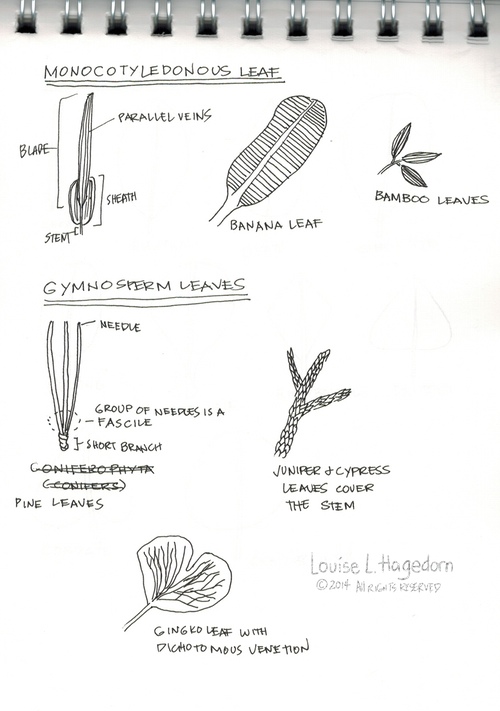 MONOCOTYLEDONOUS LEAF
PARALLEL VEINS
BLADE
SHEATH
STEM
BANANA LEAF
BAMBOO LEAVES
GYMNOSPERM LEAVES
NEEDLE
GROUP OF NEEDLES IS A
FASCILE
SHORT BRANCH
CONIFEROPHYTA
(CONIFERS)
PINE LEAVES
JUNIPER & CYPRESS
LEAVES COVER
THE STEM
Louise L. Hagedorn
©2014 All RIGHTS RESERVED
GINGKO LEAF WITH
DICHOTOMOUS VENETION